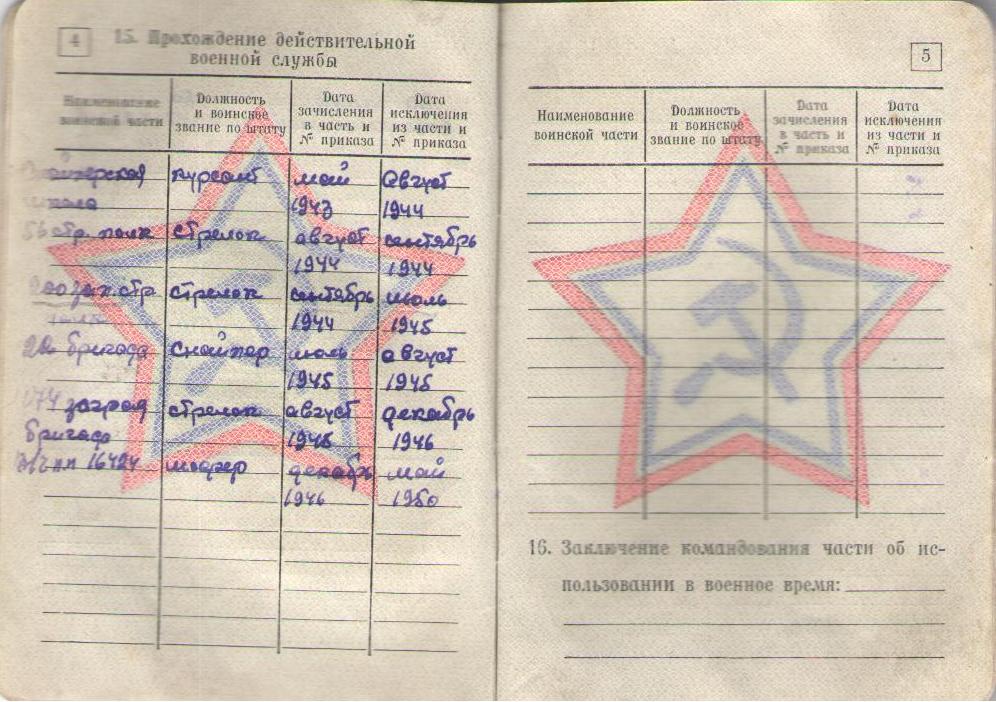 4
15. Прохождение действительной
военной службы
Наименование воинской части
Должность и воинское звание по штату
Дата зачисления в часть и № приказа
Дата исключения из части и № приказа
курсант май август
1943 1944
56 стр. полк стрелок август сентябрь
1944 1944
зап. стр. стрелок сентябрь июль
1944 1945
бригада снайпер июль август
1945 1945
бригада стрелок август декабрь
1946
16424 шофер декабрь май
1946 1950
5
Наименование воинской части
Должность и воинское звание по штату
Дата зачисления в часть и № приказа
Дата исключения из части и № приказа
16. Заключение командования части об ис-
пользовании в военное время: